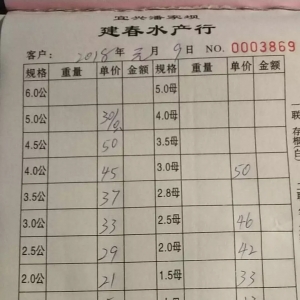 宜兴潘家坝
建春水产行
客户： 2018年 元月 9日 NO. 0003869
规格 重量 单价 金额 规格 重量 单价 金额
6.0公 5.0母
5.0公 4.0母
4.5公 50 3.5母
4.0公 45 3.0母 50
3.5公 37 2.8母
3.0公 33 2.5母 46
2.5公 29 2.0母 42
2.0公 21 1.5母 33